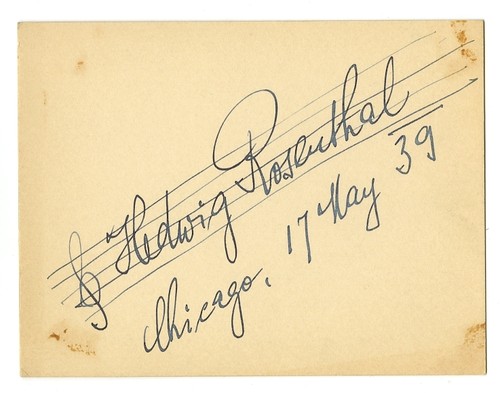 Hedwig Rosenthal
Chicago, 17 May 39